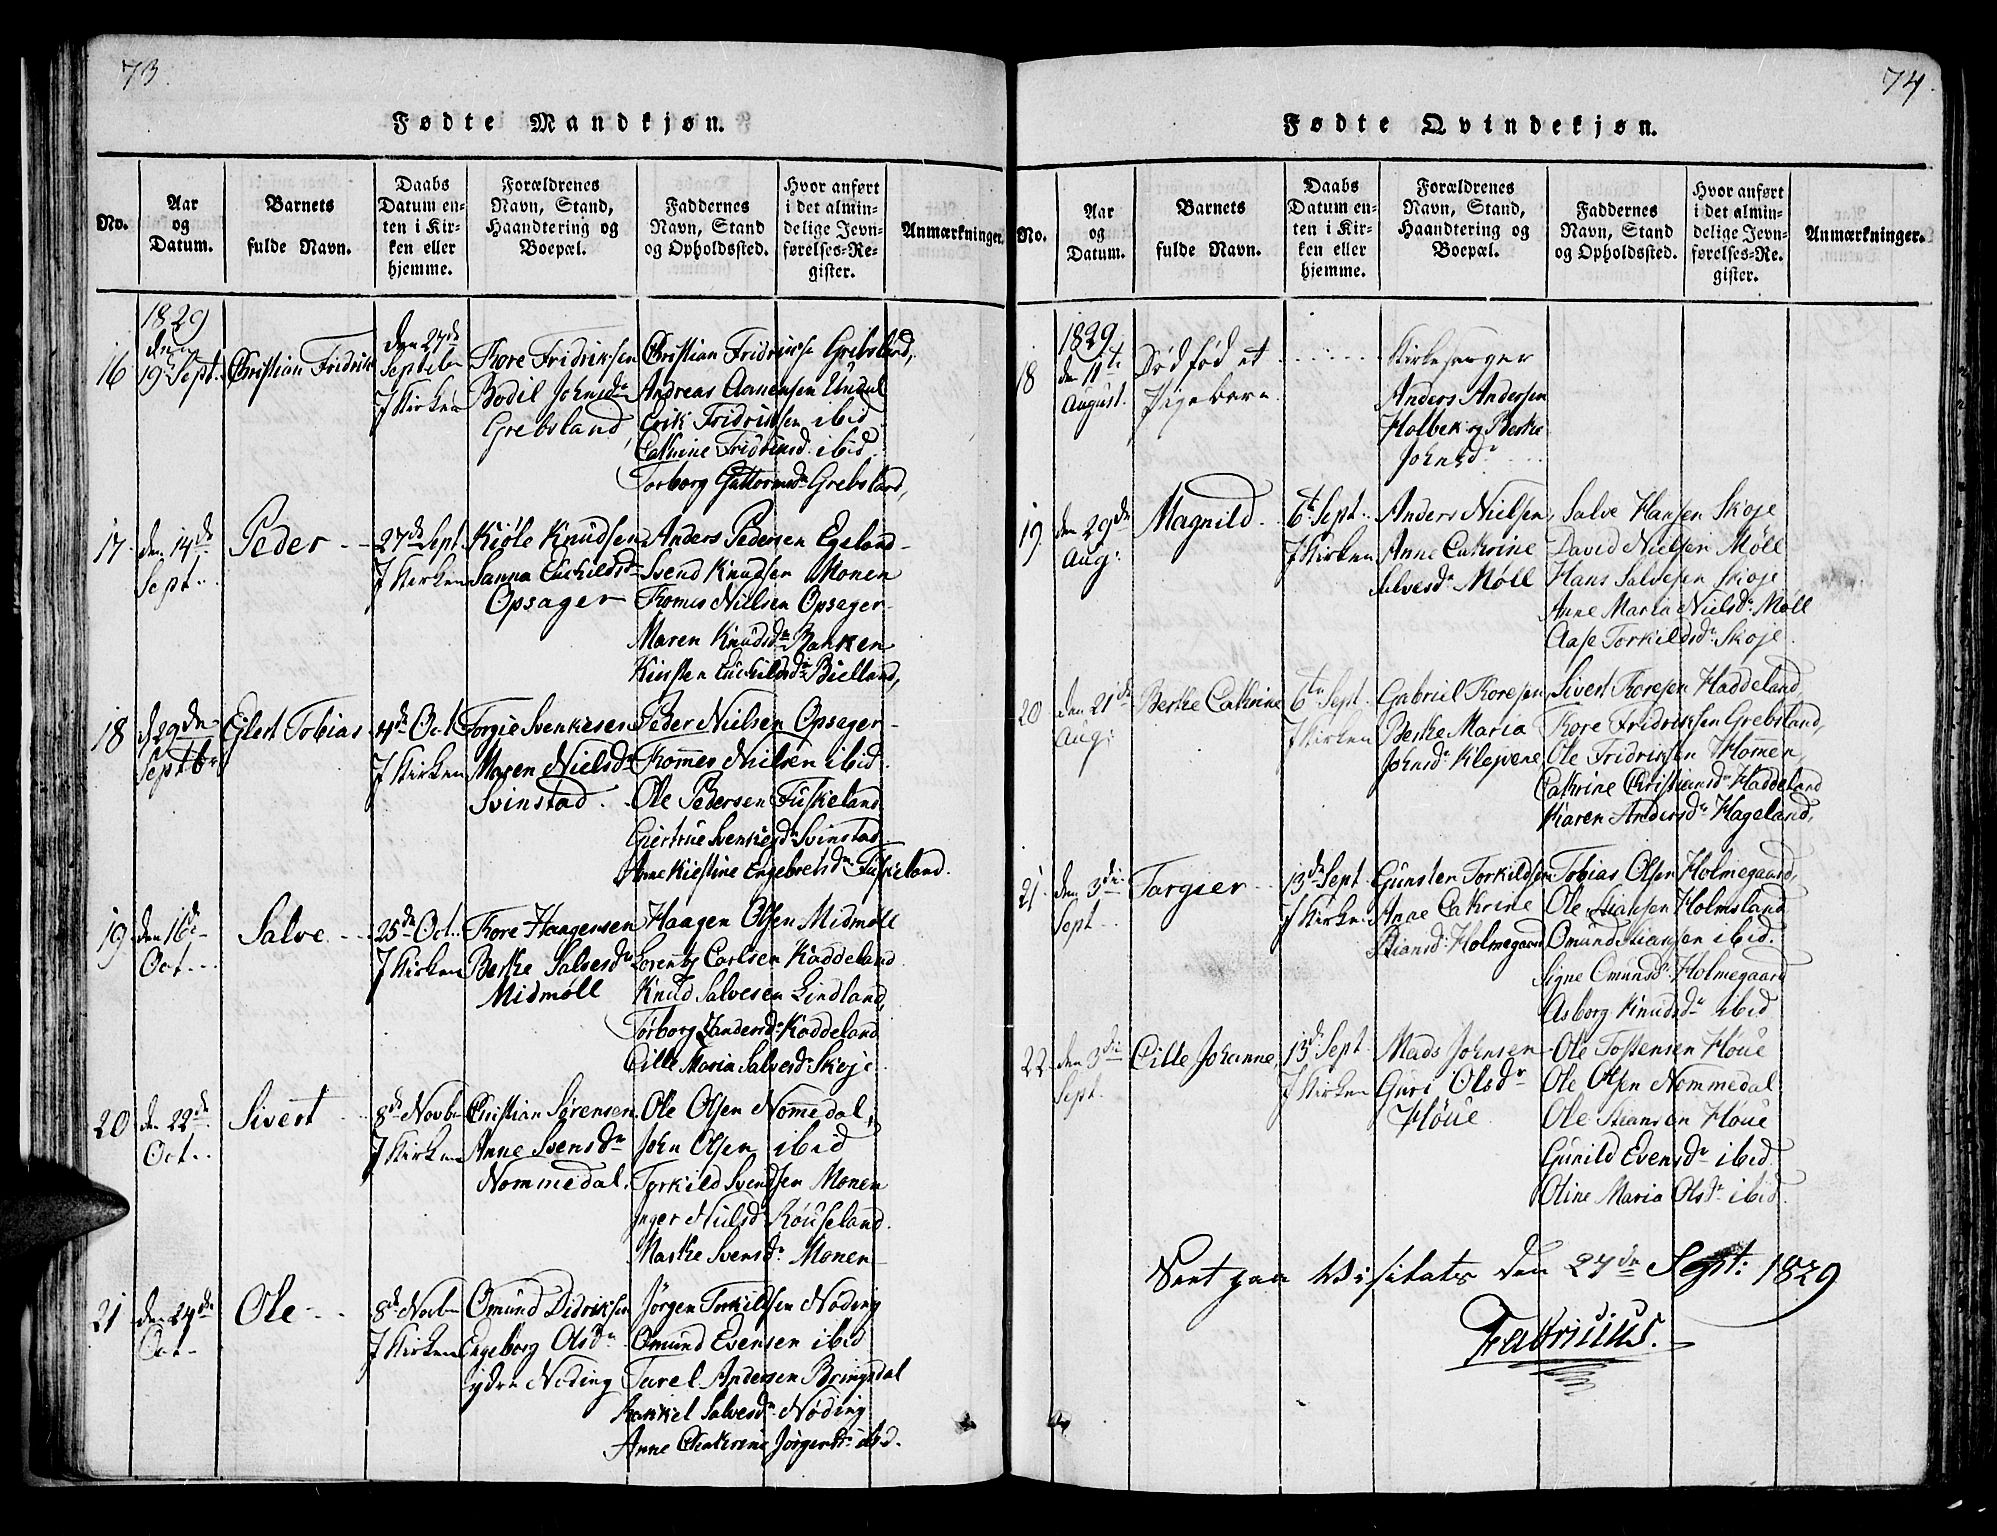 73.
Fødte Mandkjøn.
No.
Aar
og
Datum.
Barnets
fulde Navn.
Daabs
Datum en-
ten i Kir-
ken eller
hjemme.
Forældrenes
Navn, Stand,
Haandtering og
Boepæl.
Faddernes
Navn, Stand
og Opholdssted.
Hvor anført
i det almin-
delige Jevn-
førelses-Re-
gister.
Anmærkninger.
16
1829
den
19de Sept.
Christian Fridrik
den 27de
Septbr
I Kirken
Tore Fridriksen
Bodil Johnsdr
Grebsland,
Christian Fridriksen Grebsland,
Andreas Aanensen Undal
Erik Fridriksen ibid
Cathrine Fridriksd. ibid.
Torborg Guttormsdr Grebsland,
17
den 14de
Sept.
Peder
27de Sept.
I Kirken
Kiøle Knudsen
Sanna Euchildsdr
Opsager
Anders Pedersen Egeland
Svend Knudsen Monen
Tomes Nielsen Opsager
Maren Knudsdr Bakken
Kiersten Euchildsdr Bielland,
18
d 29de
Septbr
Eilert Tobias
4de Oct
I Kirken
Torgie Svenkesen
Maren Nielsdr
Svinstad.
Peder Nielsen Opsager
Tommes Nielsen ibid.
Ole Pedersen Fuskeland
Giertrue Svenkesdr Svinstad
Anne Kiestine Engebretsdr Fuskeland.
19
den 16de
Oct.
Salve
25de Oct.
I Kirken
Tore Haagensen
Berthe Salvesdr
Midmøll
Haagen Olsen Midmøll
Lorents Carlsen Kaddeland
Knud Salvesen Lindland,
Torborg Andersdr Kaddeland
Cille Maria Salvesdr Skoje
20
den 22de
Oct.
Sivert
8de Novbr
I Kirken
Christian Sørensen
Anne Svensdr
Nommedal.
Ole Olsen Nommedal,
John Olsen ibid
Torkild Svendsen Monen
Inger Nielsdr Røuseland.
Marthe Svensdr Monen
21
den 24de
Oct
Ole
8de Novbr
I Kirken
Omund Didriksen
Engeborg Olsdr
ydre Nøding
Jørgen Torkildsen Nøding
Omund Evensen ibid
Tarel Andersen Bringsdal
Rakkel Salvesdr Nøding
Anne Chatrine Jørgensdr ibid.
74.
Fødte Qvindekjøn.
No.
Aar
og
Datum.
Barnets
fulde Navn.
Daabs
Datum en-
ten i Kir-
ken eller
hjemme.
Forældrenes
Navn, Stand,
Haandtering og
Boepæl.
Faddernes
Navn, Stand
og Opholdssted.
Hvor anført
i det almin-
delige Jevn-
førelses-Re-
gister.
Anmærkninger.
18
1829
den 11te
August.
Død fød et
Pigebarn
Kirkesanger
Anders Andersen
Holbek og Berthe
Johnsdr
19
den 29de
Aug:
Magnild
6te Sept.
I Kirken
Anders Nielsen,
Anne Cathrine
Salvesdr Møll
Salve Hansen Skoje
David Nielsen Møll
Hans Salvesen Skoje
Anne Maria Nielsdr Møll
Aase Torkildsdr Skoje.
20
den 21de
Aug:
Berthe Cathrine
6te Sept.
I Kirken
Gabriel Toresen
Berthe Maria
Johnsdr Klejvene
Sivert Toresen Haddeland,
Tore Fridriksen Grebsland,
Ole Fridriksen Hommen,
Cathrine Christiansdr Haddeland
Karen Andersdr Hageland,
21.
den 3die
Sept
Targier
13de Sept
I Kirken
Gunsten Torkildsen
Anne Cathrine
Stiansdr Holmegaard
Tobias Olsen Holmegaard,
Ole Stiansen Holmsland
Omund Stiansen ibid.
Signe Omundsdr Holmegaard
Asborg Knudsdr ibid
22
den 3die
Sept.
Cille Johanne,
13de Sept
I Kirken
Mads Johnsen
Guri Olsdr
Høue
Ole Tostensen Høue
Ole Olsen Nommedal
Ole Stiansen Høue
Gunild Evensdr ibid.
Oline Maria Olsdr ibid.
Seet paa Visitats den 27de Sept: 1829
Fabricius.